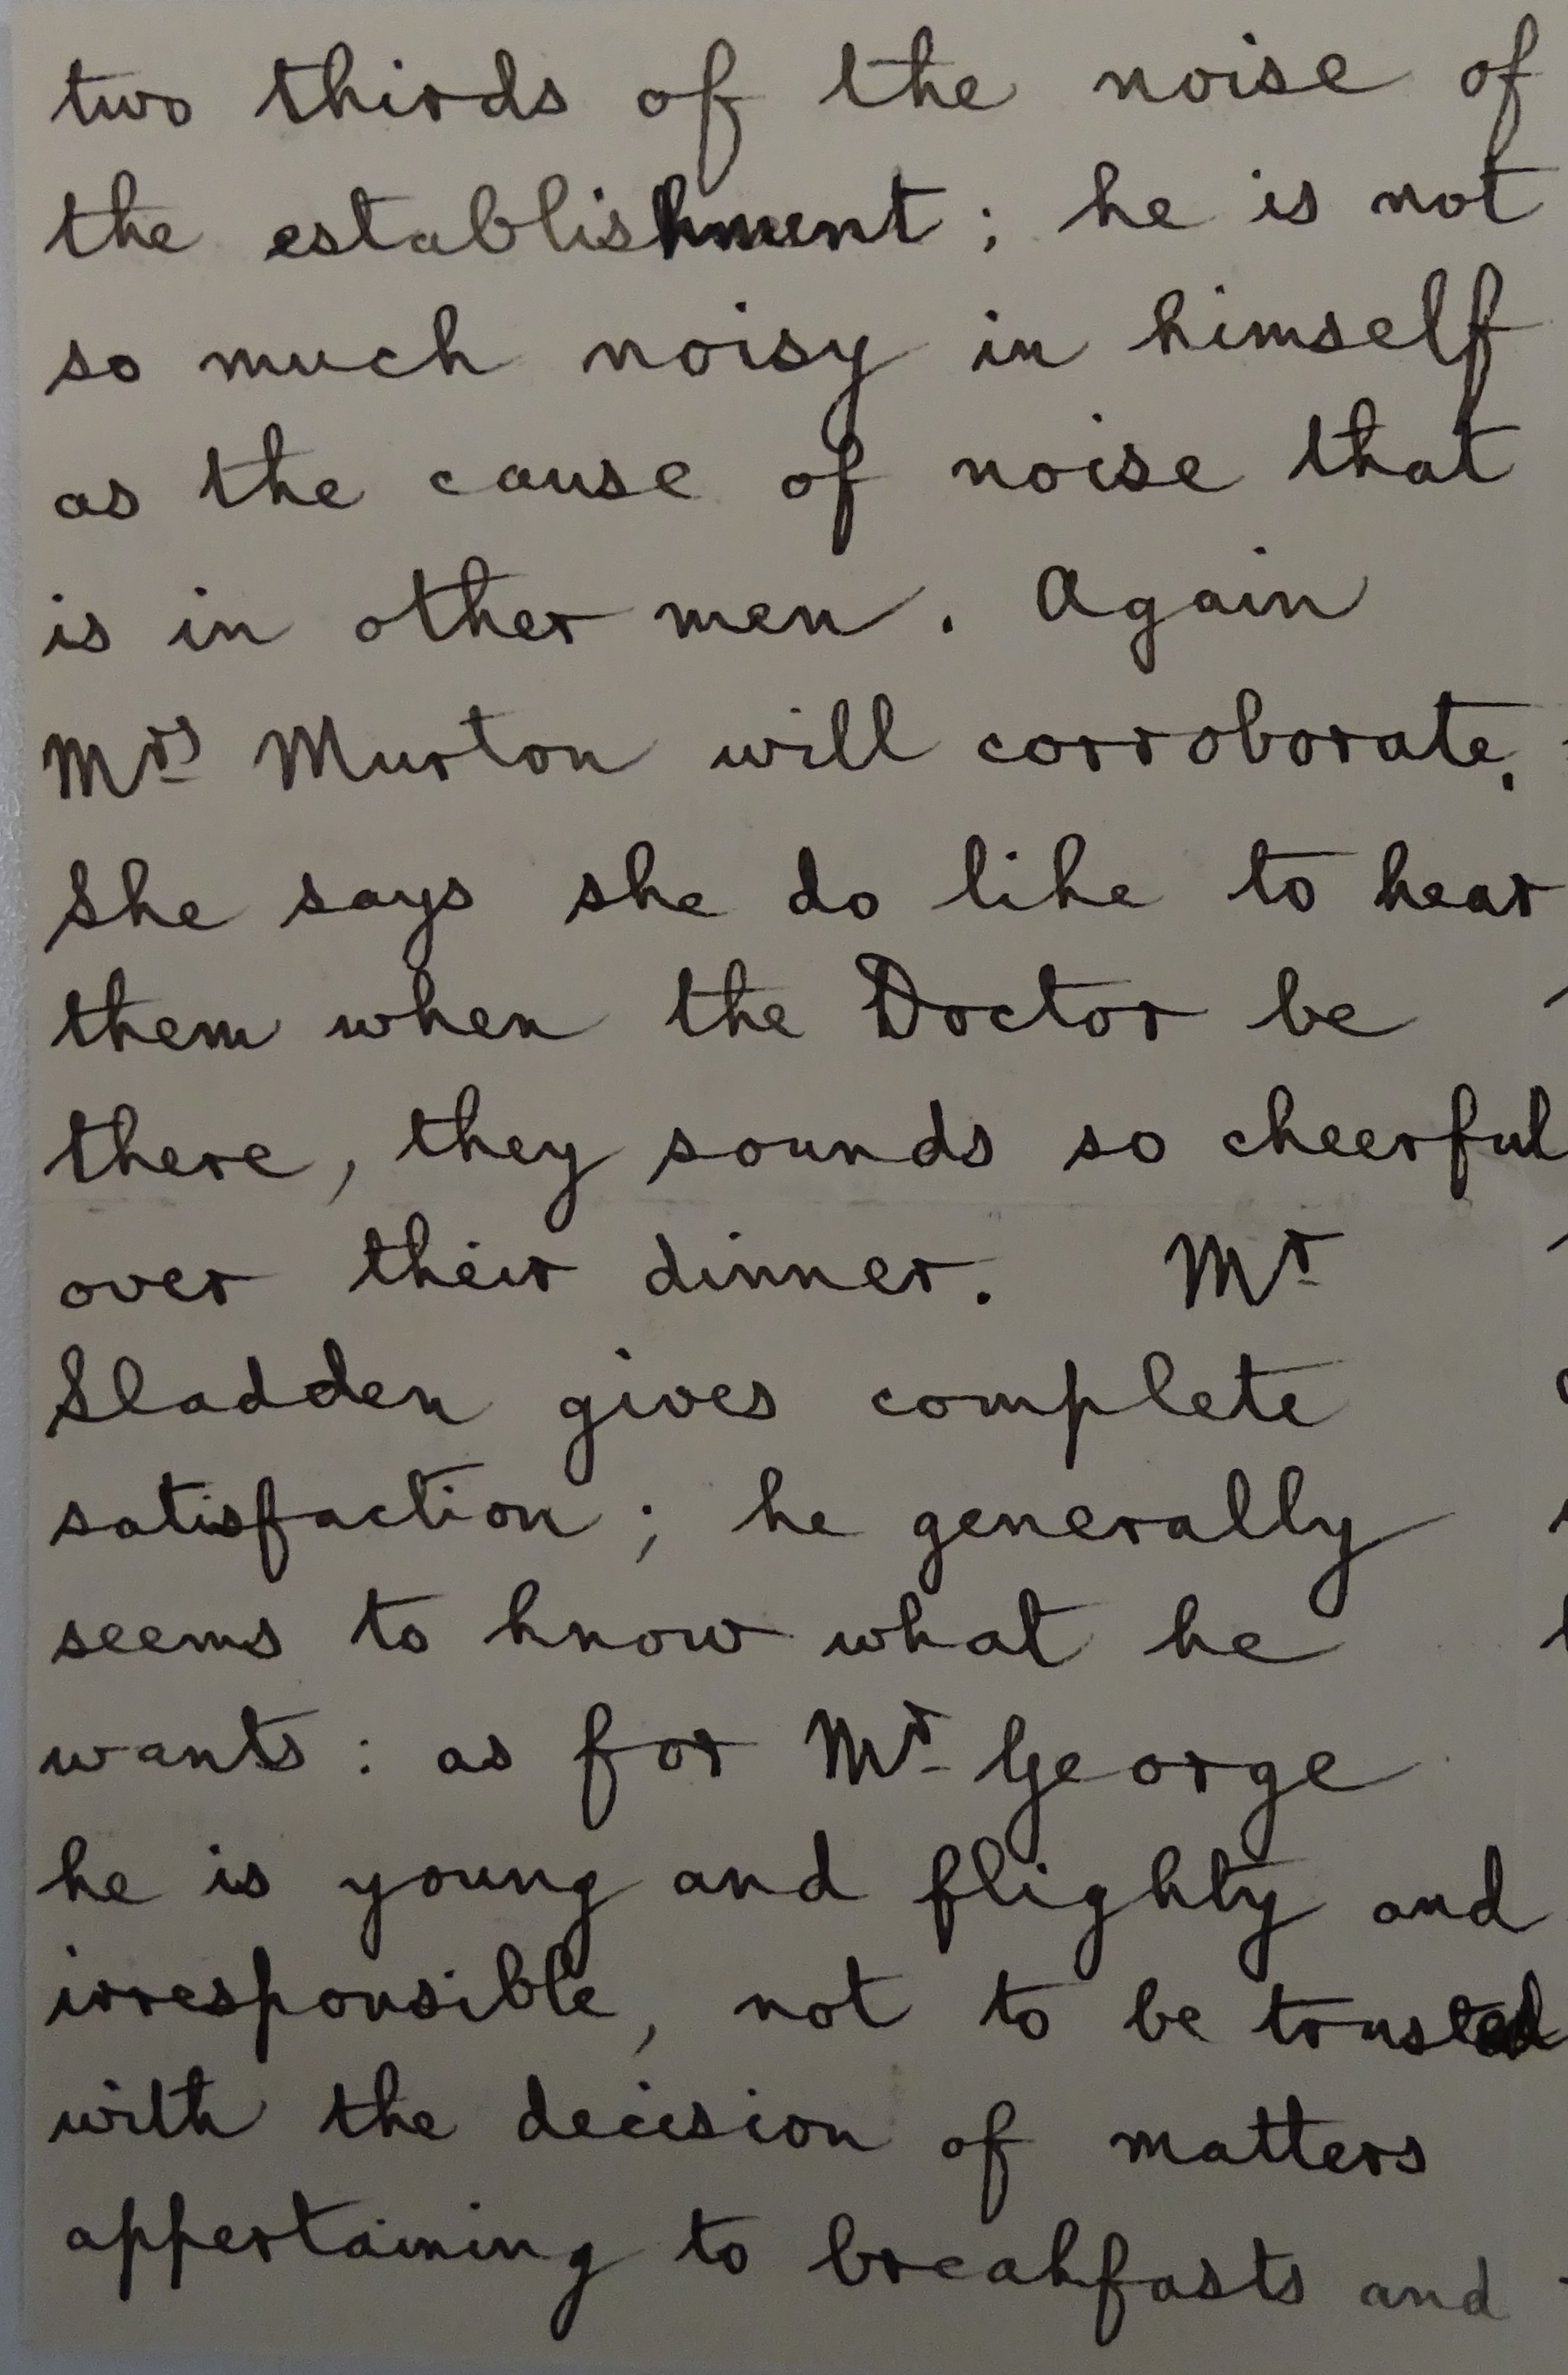 two thirds of the noise of
the establishment; he is not
so much noisy in himself
as the cause of noise that
is in other men. Again
Mrs Murton will corroborate.
She says she do like to hear
them when the Doctor be
there, they sounds so cheerful
over their dinner. Mr
Sladden gives complete
satisfaction; he generally
seems to know what he
wants: as for Mr George
he is young and flighty and
irresponsible, not to be trusted
with the decision of matters
appertaining to breakfasts and